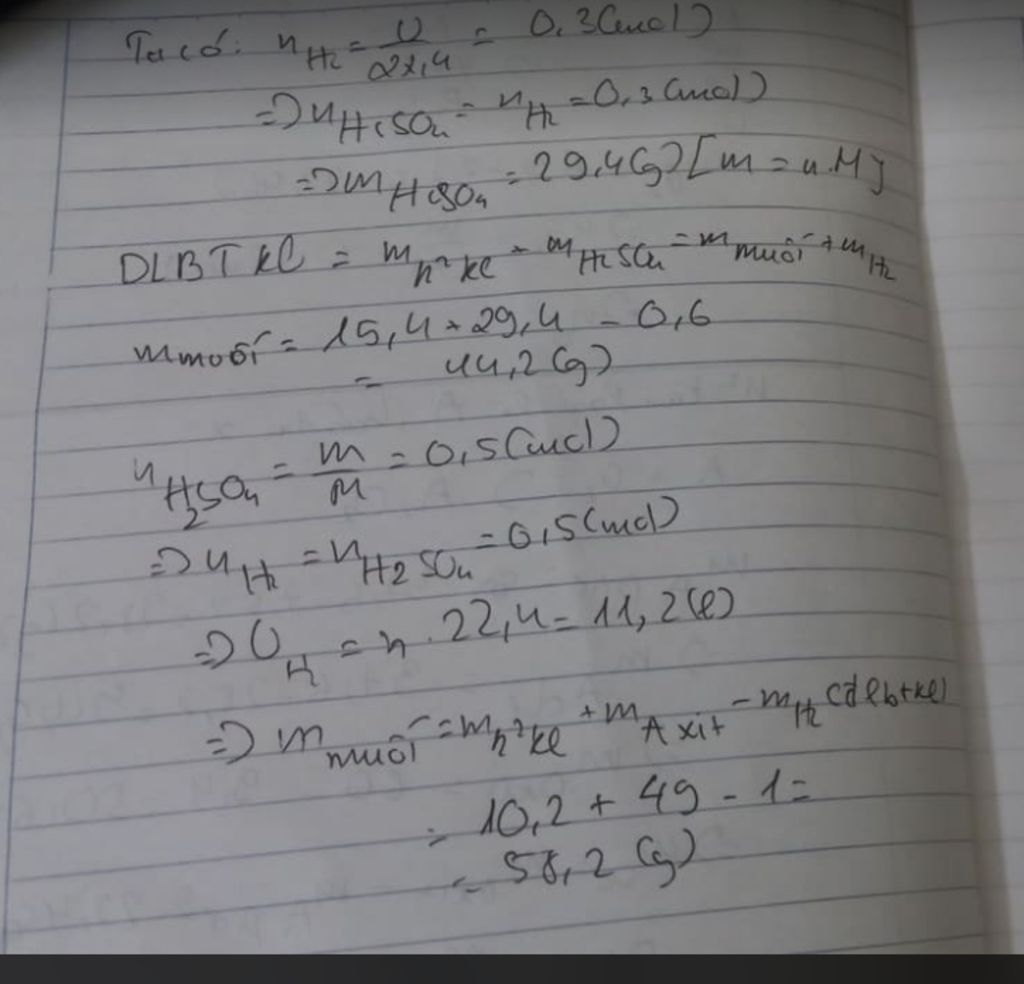 Ta có: n H2 = V/22,4 = 0,3(mol)
=> n H2SO4 = n H2 = 0,3(mol)
=> m H2SO4 = 29,4(g) [m = n.M]
DLBTKL = m h² kl + m H2SO4 = m muối + m H2
m muối = 15,4 + 29,4 - 0,6
= 44,2(g)
n H2SO4 = m/M = 0,5(mol)
=> n H2 = n H2SO4 = 0,5(mol)
=> V H2 = n . 22,4 = 11,2(l)
=> m muối = m h² kl + m Axit - m H2 (dlbtkl)
= 10,2 + 49 - 1 =
= 58,2 (g)